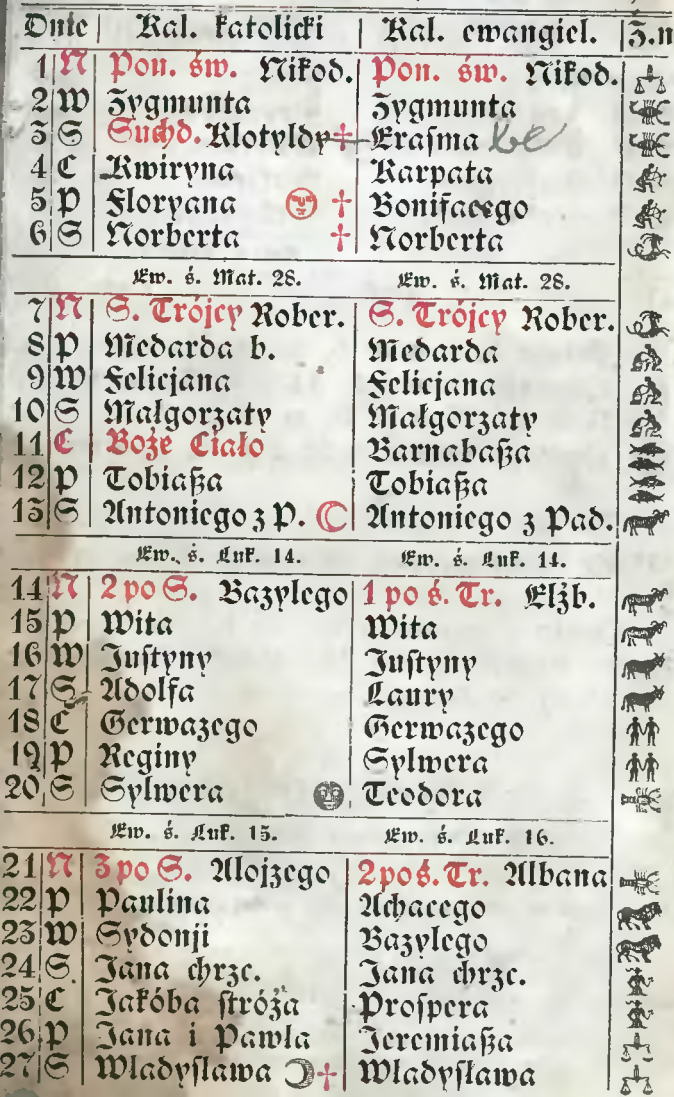 Dnie | Kal. katolicki | Kal. ewangiel. | Z.n
1 N Pon. św. Nikod. Pon. św. Nikod.
2 W Zygmunta Zygmunta
3 S Suchd. Klotyldy † Eraſma
4 C Kwiryna Karpata
5 P Floryana † Bonifacego
6 S Norberta † Norberta
Ew. ś. Mat. 28. Ew. ś. Mat. 28.
7 N S. Trójcy Rober. S. Trójcy Rober.
8 P Medarda b. Medarda
9 W Felicjana Felicjana
10 S Małgorzaty Małgorzaty
11 C Boże Ciało Barnabaßa
12 P Tobiaßa Tobiaßa
13 S Antoniego z P. Antoniego z Pad.
Ew. ś. Łuk. 14. Ew. ś. Łuk. 14.
14 N 2 po S. Bazylego 1 po ś. Tr. Elżb.
15 P Wita Wita
16 W Juſtyny Juſtyny
17 S Adolfa Laury
18 C Gerwazego Gerwazego
19 P Reginy Sylwera
20 S Sylwera Teodora
Ew. ś. Łuk. 15. Ew. ś. Łuk. 16.
21 N 3 po S. Alojzego 2 po ś. Tr. Albana
22 P Paulina Achacego
23 W Sydonji Bazylego
24 S Jana chrzc. Jana chrzc.
25 C Jakóba ſtróża Proſpera
26 P Jana i Pawla Jeremiaßa
27 S Wladyſlawa † Wladyſlawa